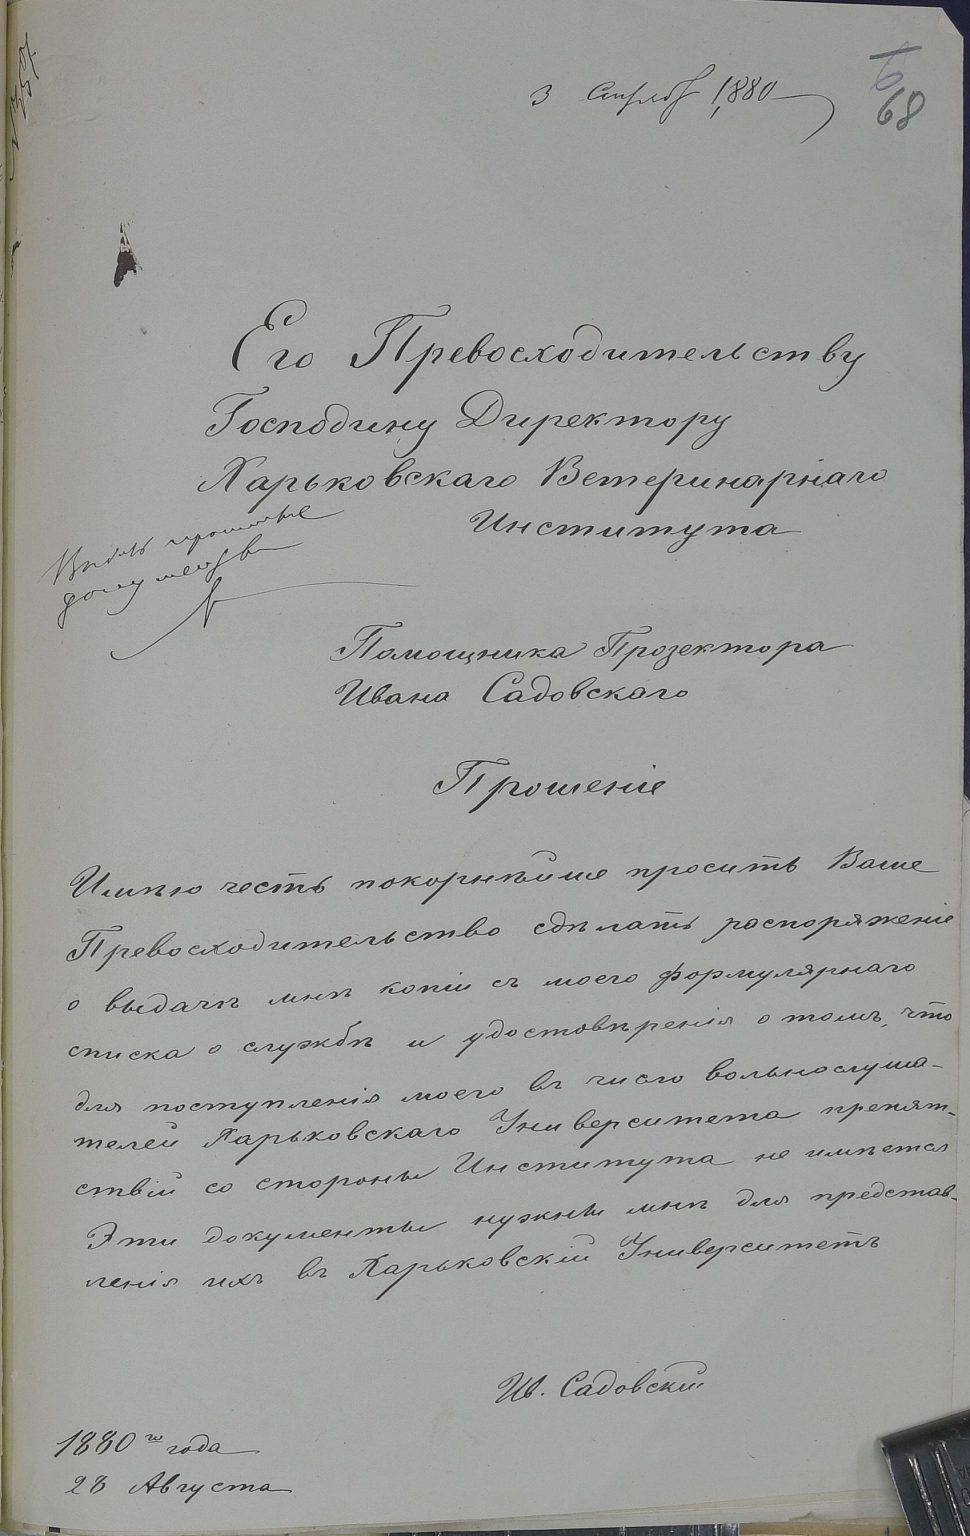 3 1880
68
Его Превосходительству
Господину Директору
Харьковскаго Ветеринарнаго
Института
Выдать просимые
документы
Помощника Прозектора
Ивана Садовскаго
Прошеніе
Имѣю честь покорнѣйше просить Ваше
Превосходительство сдѣлать распоряженіе
о выдачѣ мнѣ копіи съ моего формулярнаго
списка о службѣ и удостовѣренія о томъ, что
для поступленія моего въ число вольнослуша-
телей Харьковскаго Университета препят-
ствій со стороны Института не имѣется
Эти документы нужны мнѣ для представ-
ленія ихъ въ Харьковскій Университетъ
Ив. Садовскій
1880го года
28 Августа